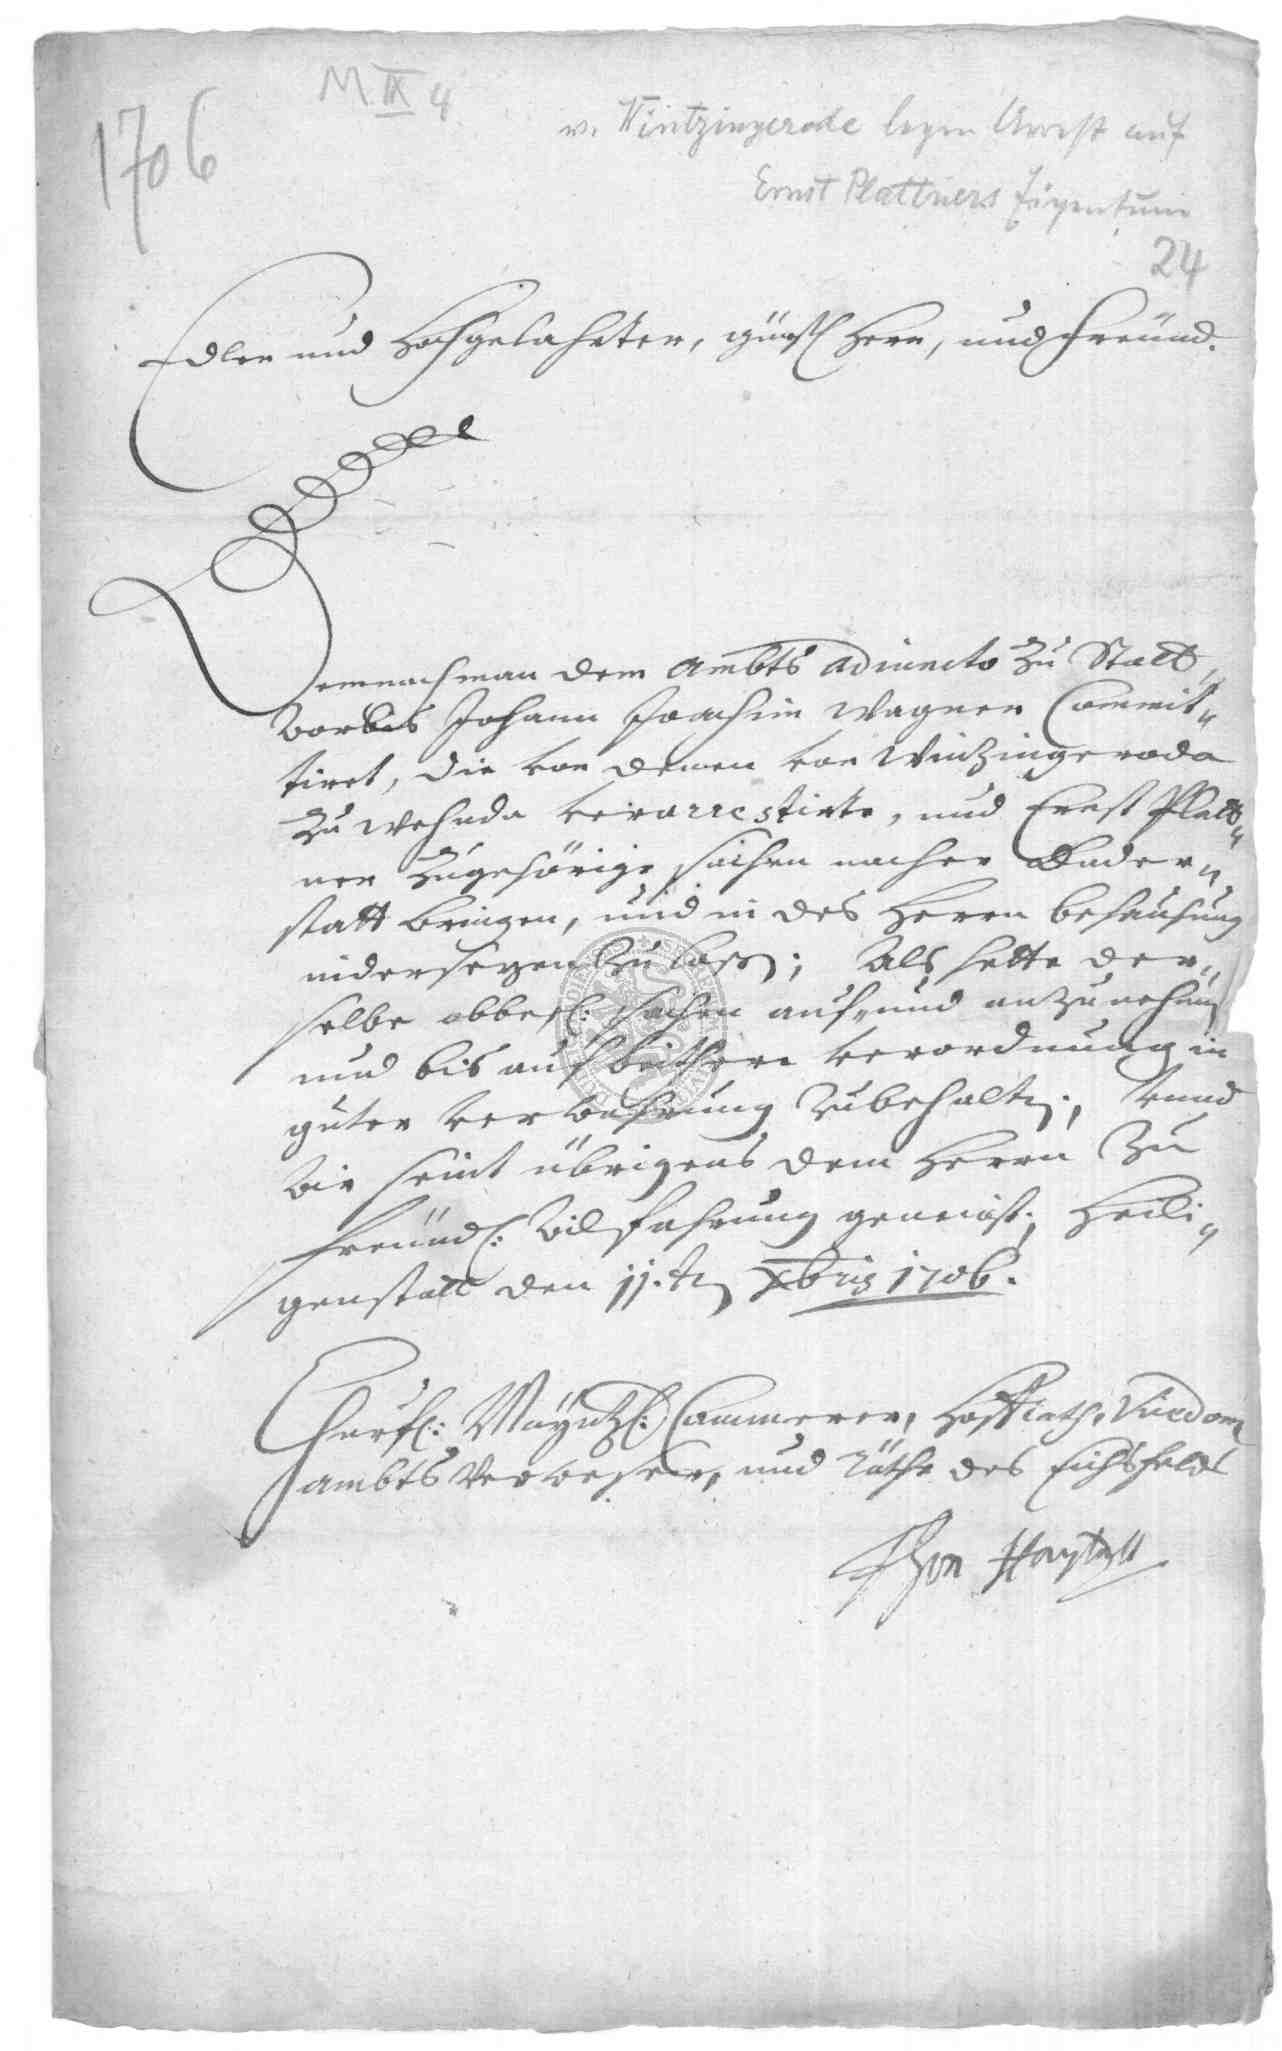 M IX 4
1706
v. Wintzingerode legen Arrest auf
Ernst Plattners Eigentum
24
Edler und Hochgelahrter, günst. Herr, und Freünd.
Demnach man dem Ambts adiuncto zu Statt
Worbis Johann Joachim Wagner Commit„
tiret, die von denen von Wintzingeroda
zu Wehnda verarrestirte, und Ernst Platt„
ner zugehörige sachen nacher Duder„
statt bringen, und in des Herrn behausung
nidersezen zu lassen; Als hette der„
selbe obbes.: sachen auf, und anzunehmen
und bis auf weithere verordnung in
guter verwahrung zubehalten; Vnnd
Wir seint übrigens dem Herrn zu
freündl: Wilfahrung geneigt; Heili„
genstatt den 11.ten Xbris 1706.
Churfl: Mayntzl: Cammerer, Hoffrath, Vicedom
ambts Verweser, und Räthe des Eichsfelds